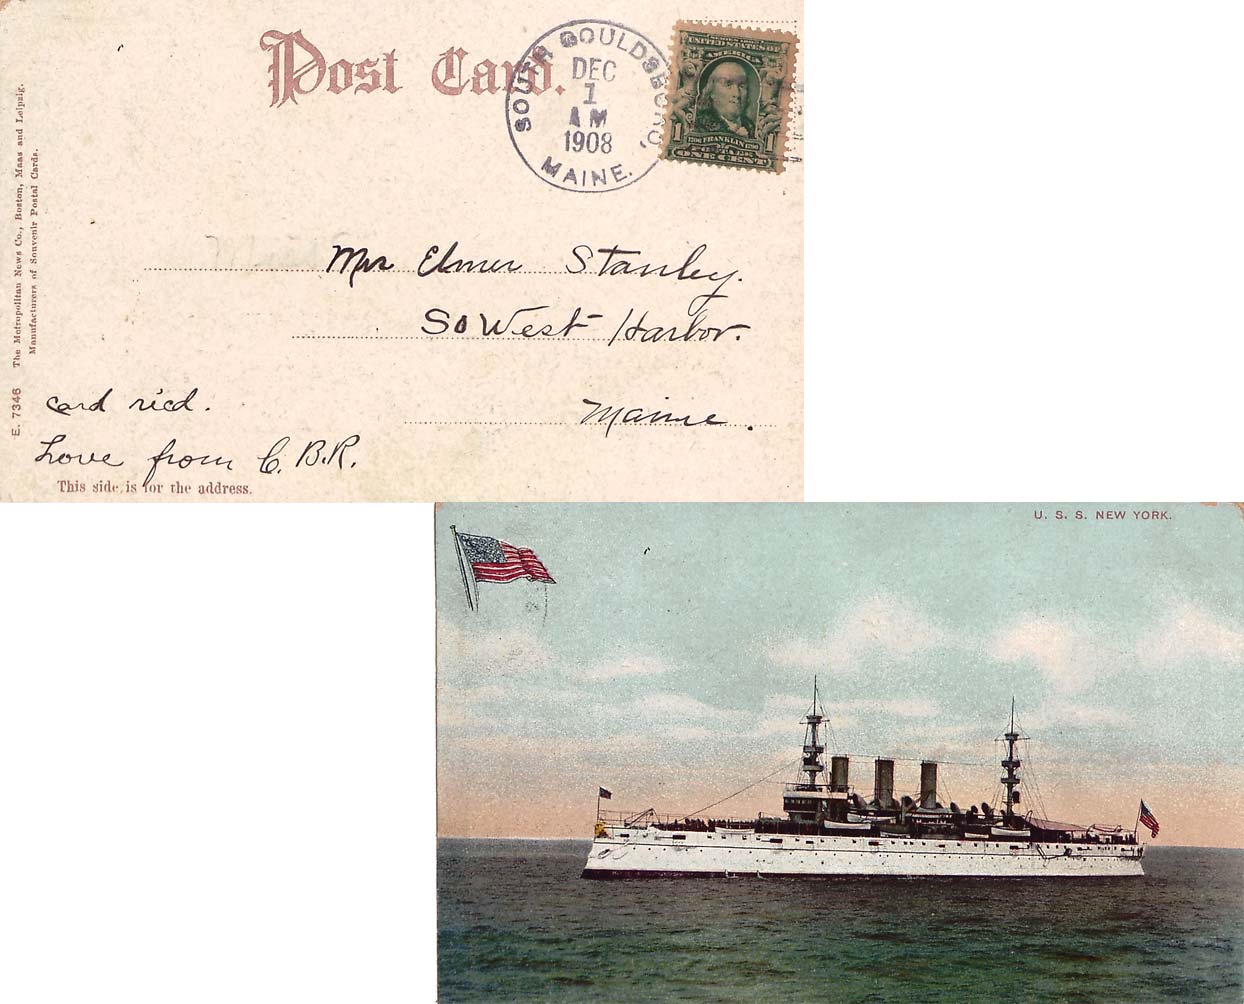 Post Card.
SOUTH GOULDSBORO,
DEC
1
AM
1908
MAINE.
UNITED STATES OF
AMERICA
1 FRANKLIN 1
ONE CENT
Mrs Elmer Stanley.
So West Harbor.
Maine.
card rec'd.
Love from C. B.R.
This side is for the address.
E. 7346 The Metropolitan News Co., Boston, Mass and Leipzig.
Manufacturers of Souvenir Postal Cards.
U. S. S. NEW YORK.